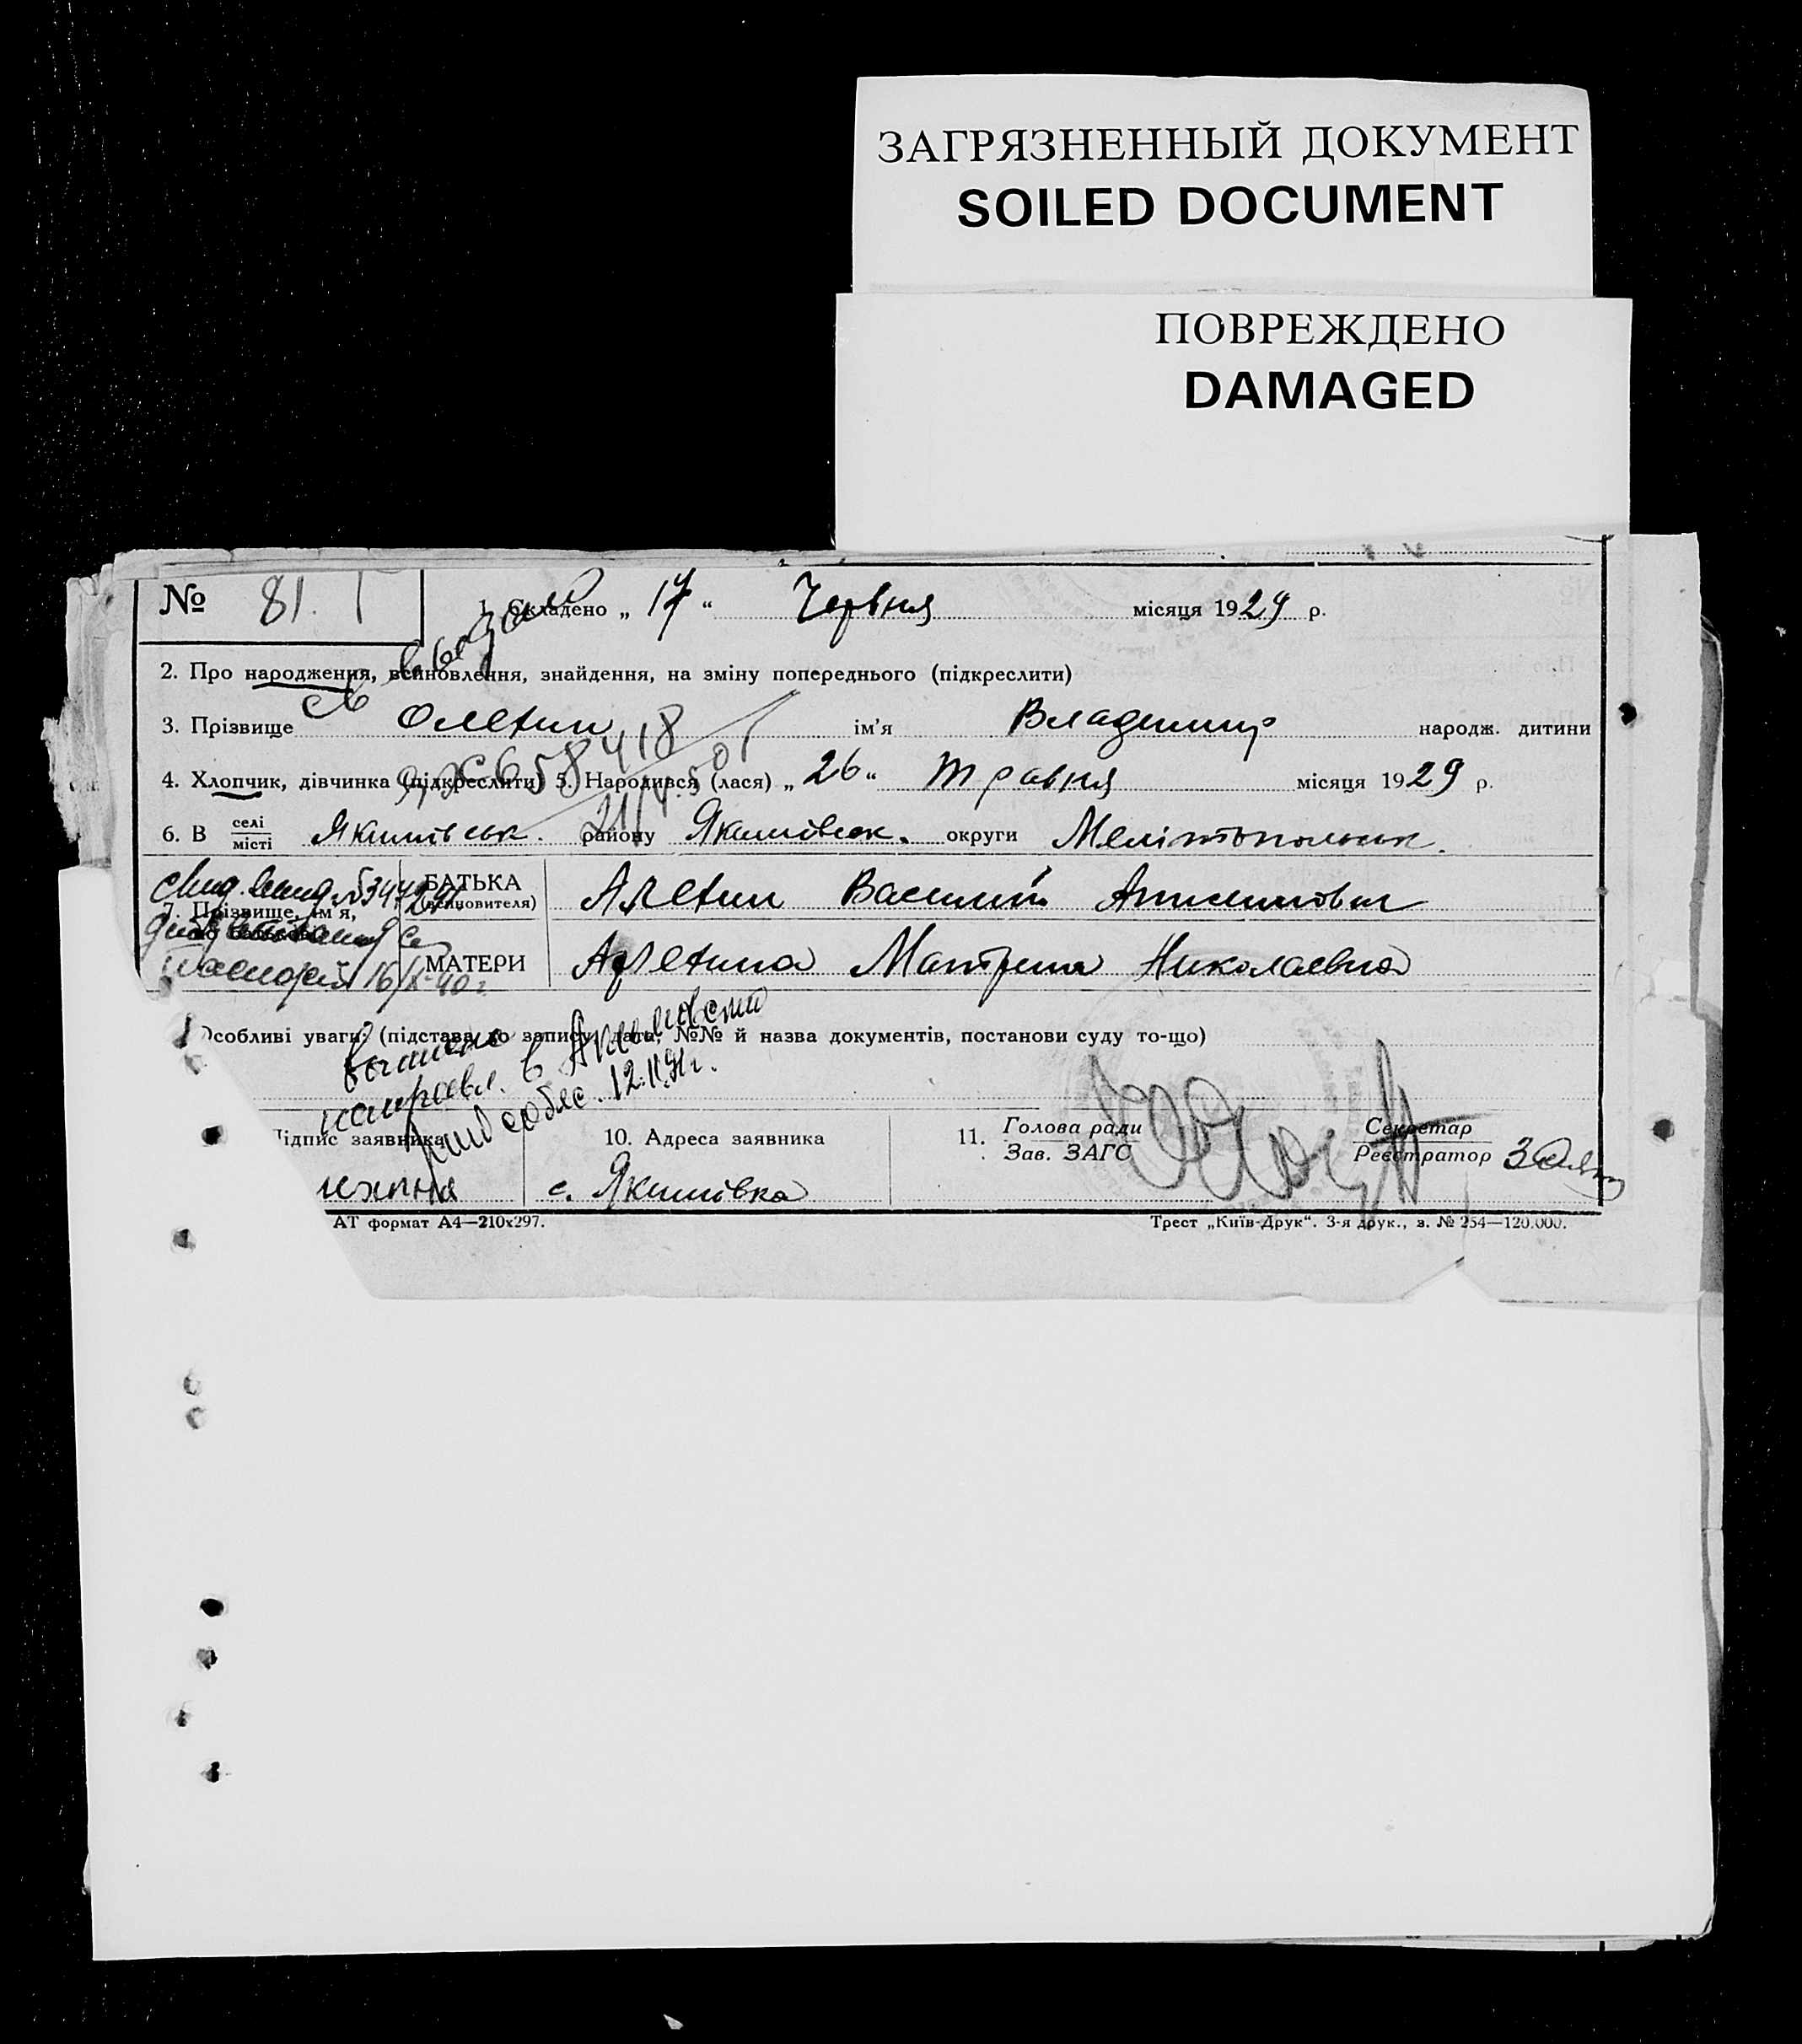 ЗАГРЯЗНЕННЫЙ ДОКУМЕНТ
SOILED DOCUMENT
ПОВРЕЖДЕНО
DAMAGED
№ 81. 1. Складено „ 17 “ Червня місяця 1929 р.
2. Про народження, всиновлення, знайдення, на зміну попереднього (підкреслити)
3. Прізвище Олехин ім’я Владимир народж. дитини
658418
4. Хлопчик, дівчинка (підкреслити) 5. Народився (лася) „ 26 “ травня місяця 1929 р.
6. В селі місті Якимівськ. району Якимівськ. округи Мелітопольськ.
7. Прізвище, ім’я, БАТЬКА (всиновителя) Алехин Василий
МАТЕРИ Алехина Матрена Николаевна
16/X-40 г.
Особливі уваги: (підстава до запису, дата, №№ й назва документів, постанови суду то-що)
направл. в
12.II.91г.
Підпис заявника 10. Адреса заявника 11. Голова ради Зав. ЗАГС Секретар Реєстратор
с. Якимівка
АТ формат А4—210х297. Трест „Київ-Друк“. 3-я друк., з. № 254—120.000.